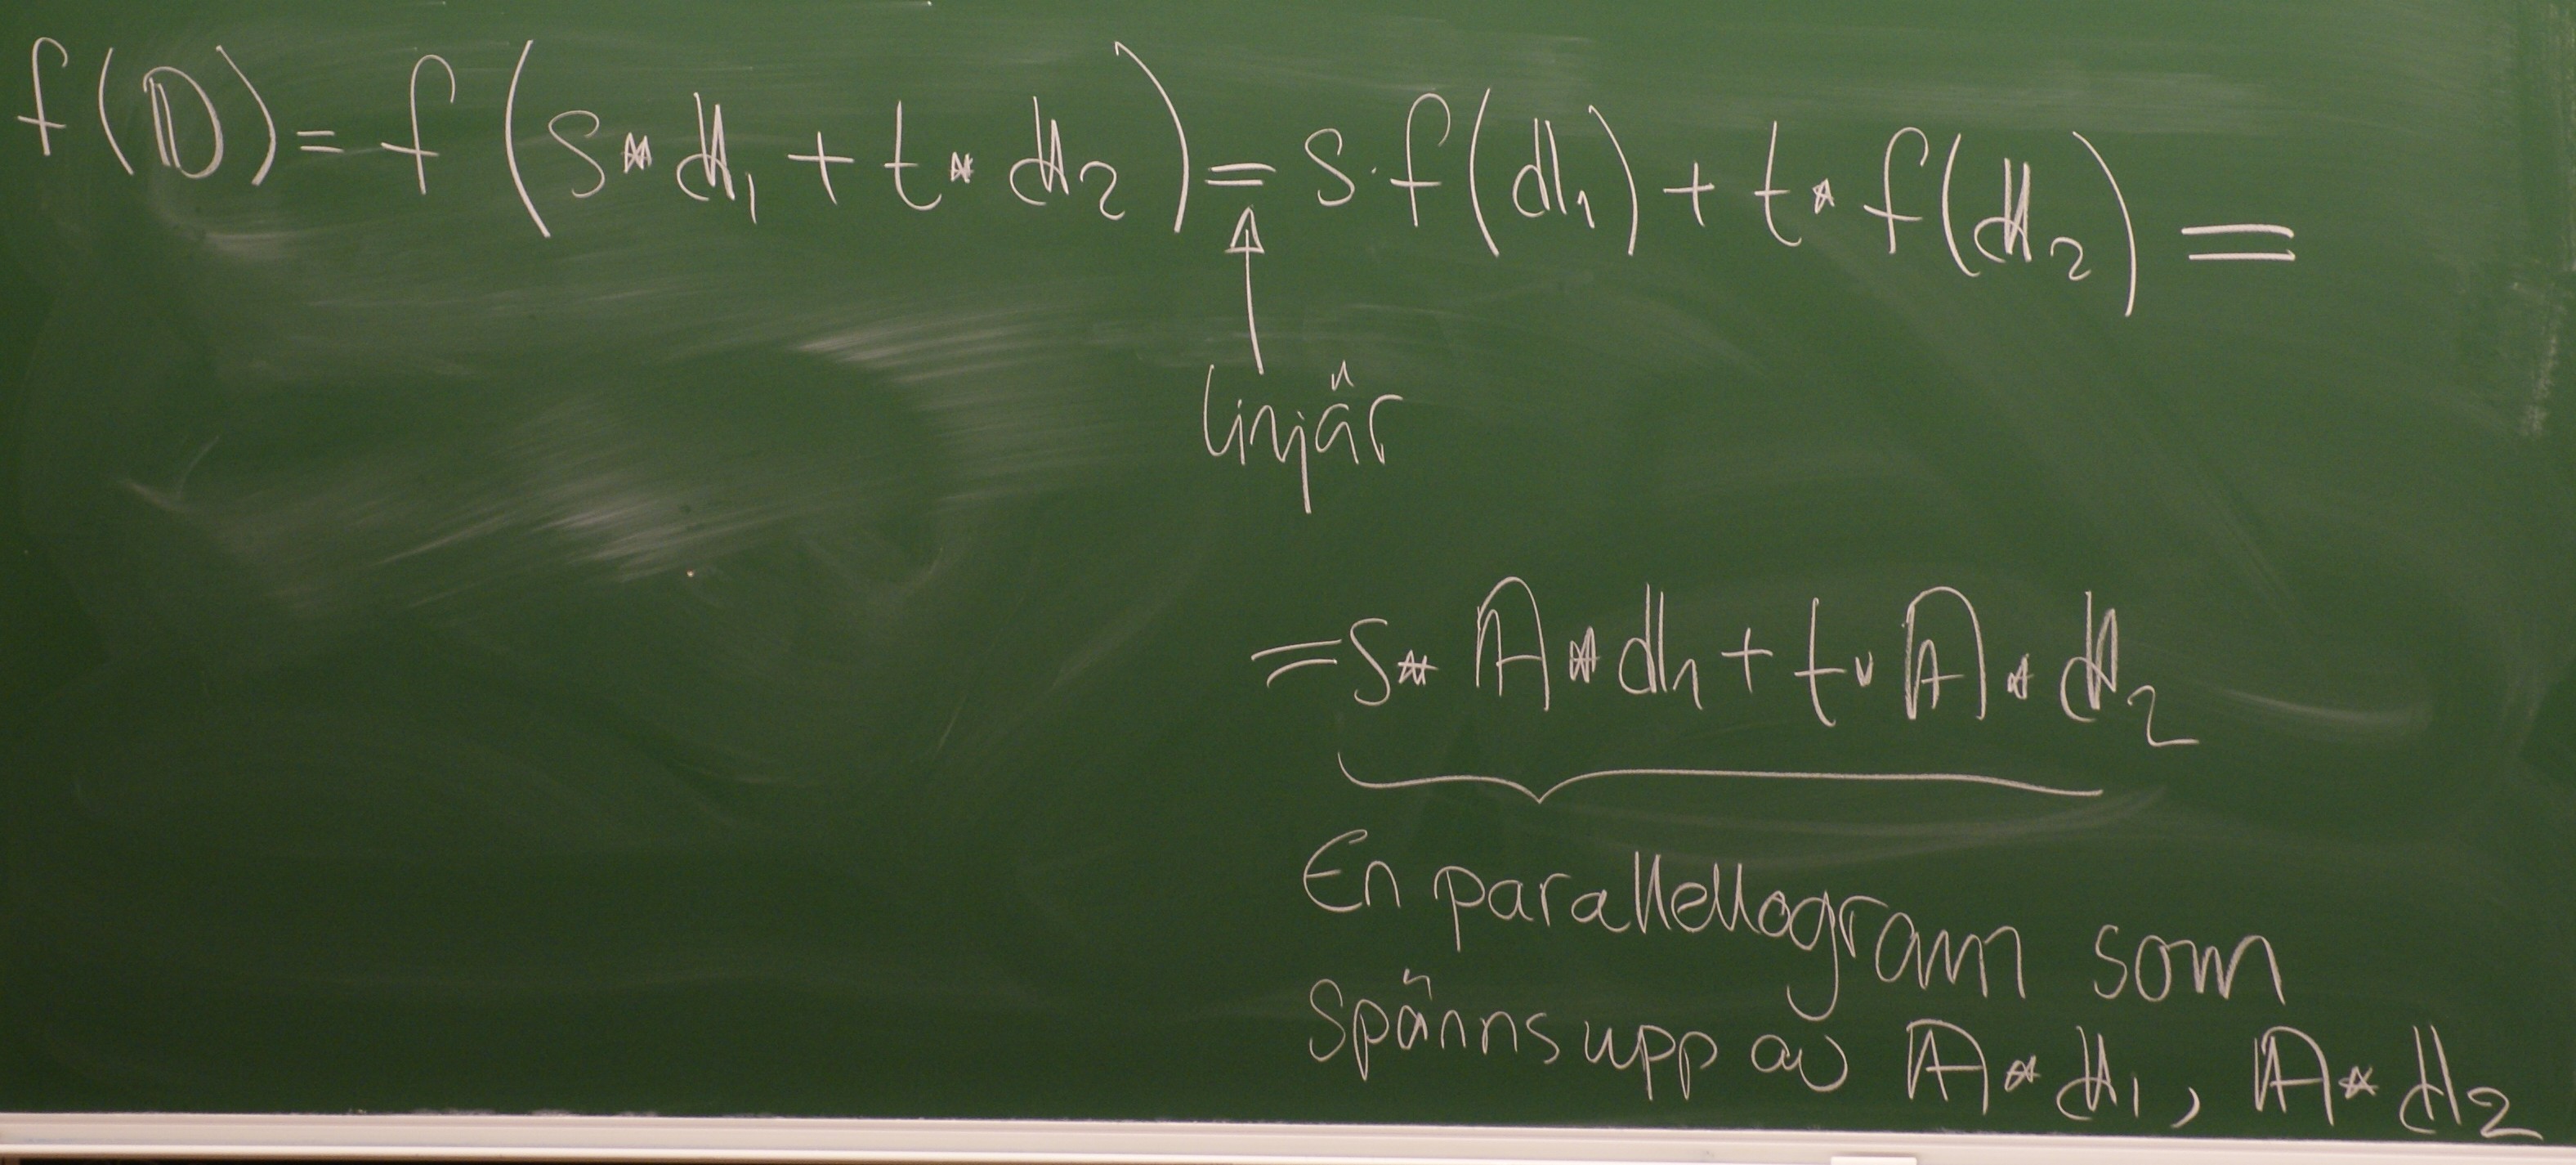 f(𝔻) = f(s * 𝕕₁ + t * 𝕕₂) = s · f(𝕕₁) + t * f(𝕕₂) =
linjär
= s * 𝔸 * 𝕕₁ + t * 𝔸 * 𝕕₂
En parallellogram som
Spänns upp av 𝔸 * 𝕕₁, 𝔸 * 𝕕₂